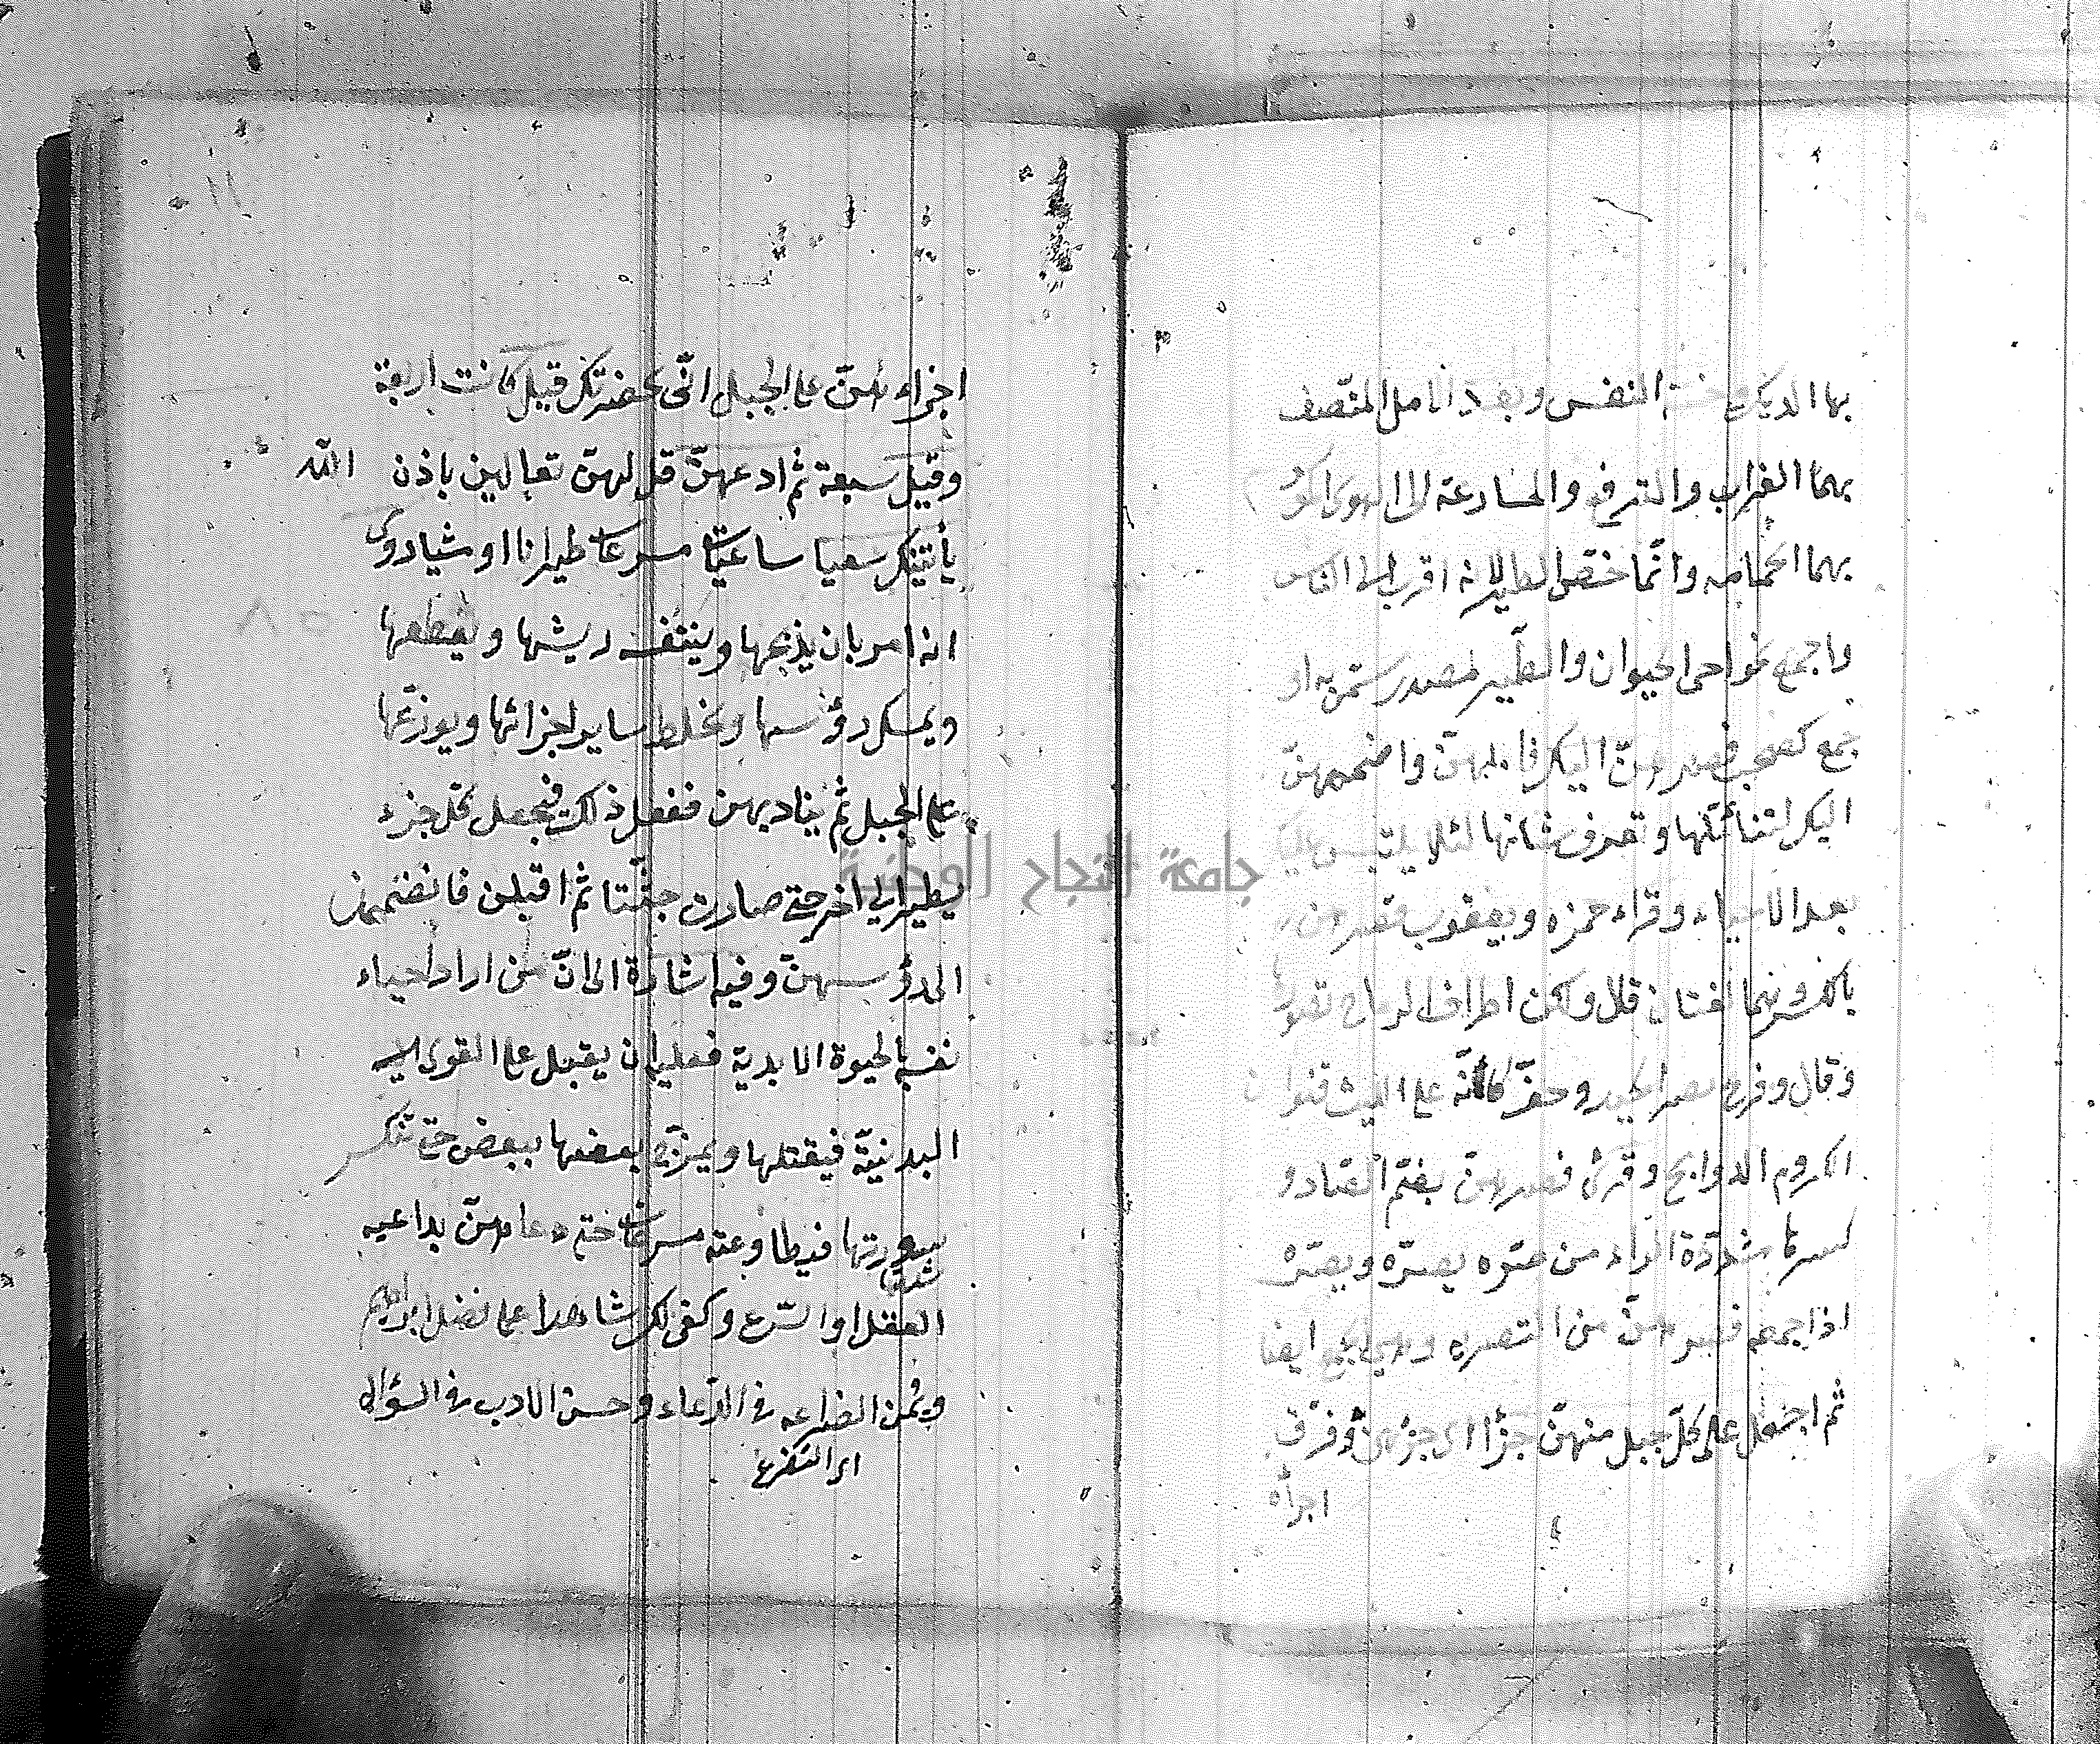 بها الديك وخسة النفس وبعد الامل المتصف
بهما الغراب والترفع والمسارعة الى الهوى الموسوم
بهما الحمامه وانما خص الطير لانه اقرب الى الناس
واجمع لخواص الحيوان والطير مصدر سمى به او
جمع كصحب فصرهن اليك فاملهن واضممهن
اليك لتتأملها وتعرف شانها لئلا يلتبس عليك
بعد الاحياء وقراء حمزه ويعقوب فصرهن
بالكسر وهما لغتان قال ولكن اطراف الرماح تصورها
وقال وفرع يصير الجيد وحف كأنه على الليث قنوان
الكروم الدوالح وقرئ فصرهن بضم الصاد و
كسرها مشددة الراء من صره يصره ويصره
اذا جمعه فصرهن من التصريه وهي الجمع ايضا
ثم اجعل على كل جبل منهن جزأ اى جزئهن وفرق
اجزاء
اجزاءهن على الجبل التى بحضرتك قيل كانت اربعة
وقيل سبعة ثم ادعهن قل لهن تعالين باذن الله
يأتينك سعيا ساعيات مسرعات طيرانا او مشيا روى
انه امر بان يذبحها وينتف ريشها ويقطعها
ويمسك رؤسها ويخلط ساير اجزائها ويوزعها
على الجبل ثم يناديهن ففعل ذلك فجعل كل جزء
يطير الى اخر حتى صارت جثثا ثم اقبلن فانضممن
الى رؤسهن وفيه اشارة الى ان من اراد احياء
نفسه بالحيوة الابدية فعليه ان يقبل على القوى
البدنية فيقتلها ويمزج بعضها ببعض حتى تنكسر
سورتها فيطاوعنه مسرعات متى دعاهن بداعيه
العقل او الشرع وكفى لك شاهدا على فضل ابراهيم
ويمن الضراعه فى الدعاء وحسن الادب فى السؤال
اى التضرع
جامعة النجاح الوطنية